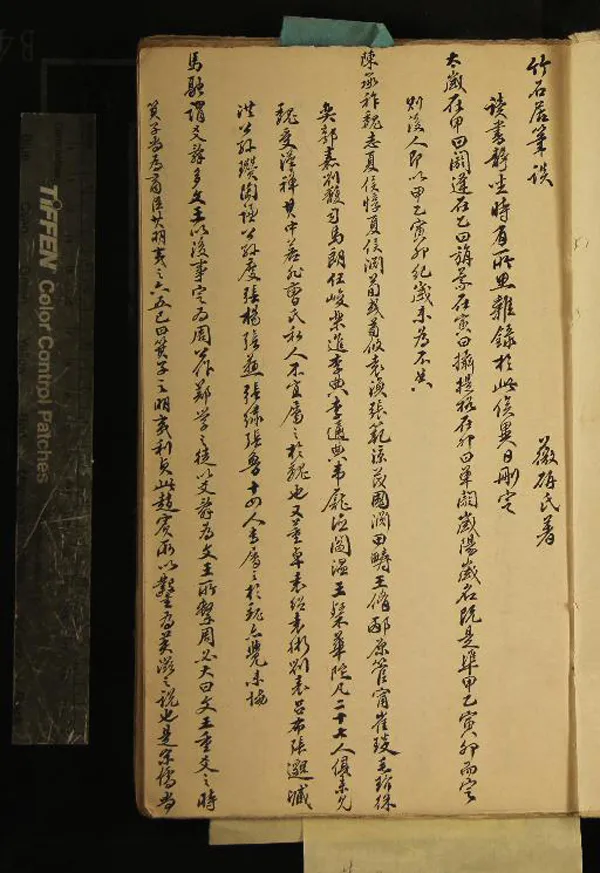 竹石居筆談
薇研氏著
讀書靜坐時有所思雜錄於此俟異日刪定
太歲在甲曰閼逢在乙曰旃蒙在寅曰攝提格在卯曰單閼歲陽歲名既是準甲乙寅卯而定
則後人即以甲乙寅卯紀歲未為不典
陳承祚魏志夏侯惇夏侯淵荀彧荀攸袁渙張範涼茂國淵田疇王脩邴原管甯崔琰毛玠徐
奕郭嘉劉馥司馬朗任峻樂進李典李通典韋龐淯閻溫王粲華陀凡二十七人俱未見
魏受漢禪其中若非曹氏私人不宜屬之於魏也又董卓袁紹袁術劉表呂布張邈臧
洪公孫瓚陶謙公孫度張楊張燕張繡張魯十四人亦屬之於魏亦覺未協
馬融謂爻辭多文王以後事定為周公作鄭學之徒以爻辭為文王所繫周必大曰文王重爻之時
箕子尚為商臣其明夷之六五已曰箕子之明夷利貞此趙賓所以鑿為荄滋之說也是宋儒尚
TIFFEN Color Control Patches